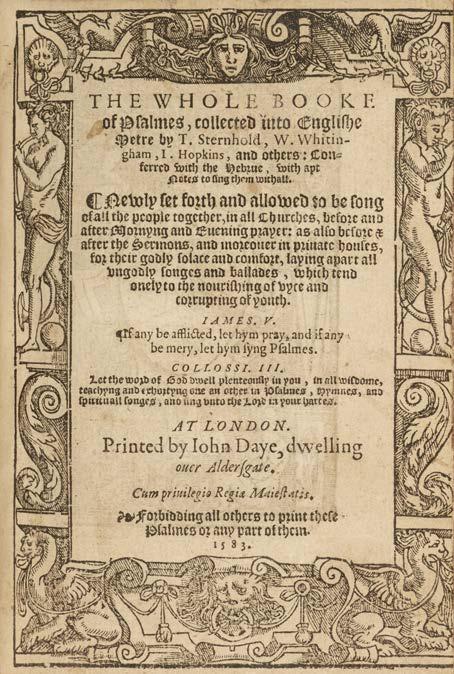 THE WHOLE BOOKE
of Psalmes, collected into Englishe
Metre by T. Sternhold, W. Whitin-
gham, I. Hopkins, and others: Con-
ferred with the Hebrue, with apt
Notes to sing them withall.
¶ Newly set forth and allowed to be song
of all the people together, in all Churches, before and
after Mornyng and Euening prayer: as also before &
after the Sermons, and moreouer in priuate houses,
for their godly solace and comfort, laying apart all
vngodly songes and ballades, which tend
onely to the nourishing of vyce and
corrupting of youth.
IAMES. V.
¶If any be afflicted, let hym pray, and if any
be mery, let hym syng Psalmes.
COLLOSSI. III.
Let the word of God dwell plenteously in you, in all wisdome,
teachyng and exhortyng one an other in Psalmes, Hymnes, and
spirituall songes, and sing vnto the Lord in your hartes.
AT LONDON.
Printed by Iohn Daye, dwelling
ouer Aldersgate.
Cum priuilegio Regiæ Maiestatis.
❧Forbidding all others to print these
Psalmes or any part of them.
1583.